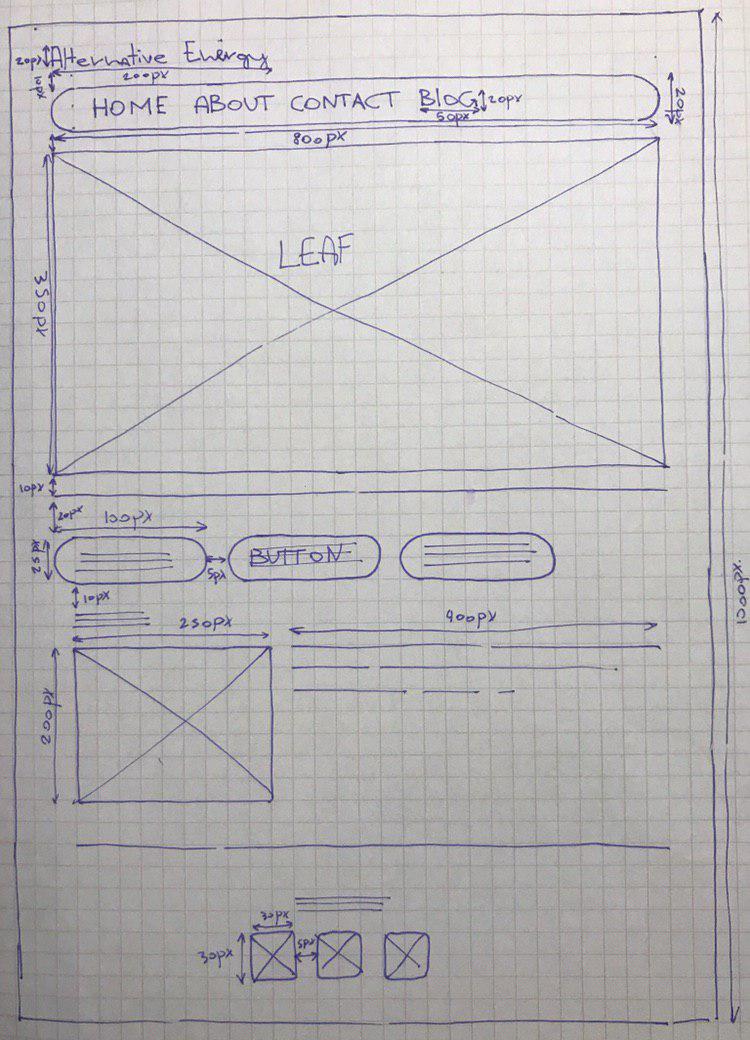 20px Alternative Energy
10px 200px
HOME ABOUT CONTACT BlOG 20px 20px
50px
800px
LEAF
350px
10px
20px 100px
25px BUTTON
5px
10px
250px 400px
200px
1200px
30px
30px 5px